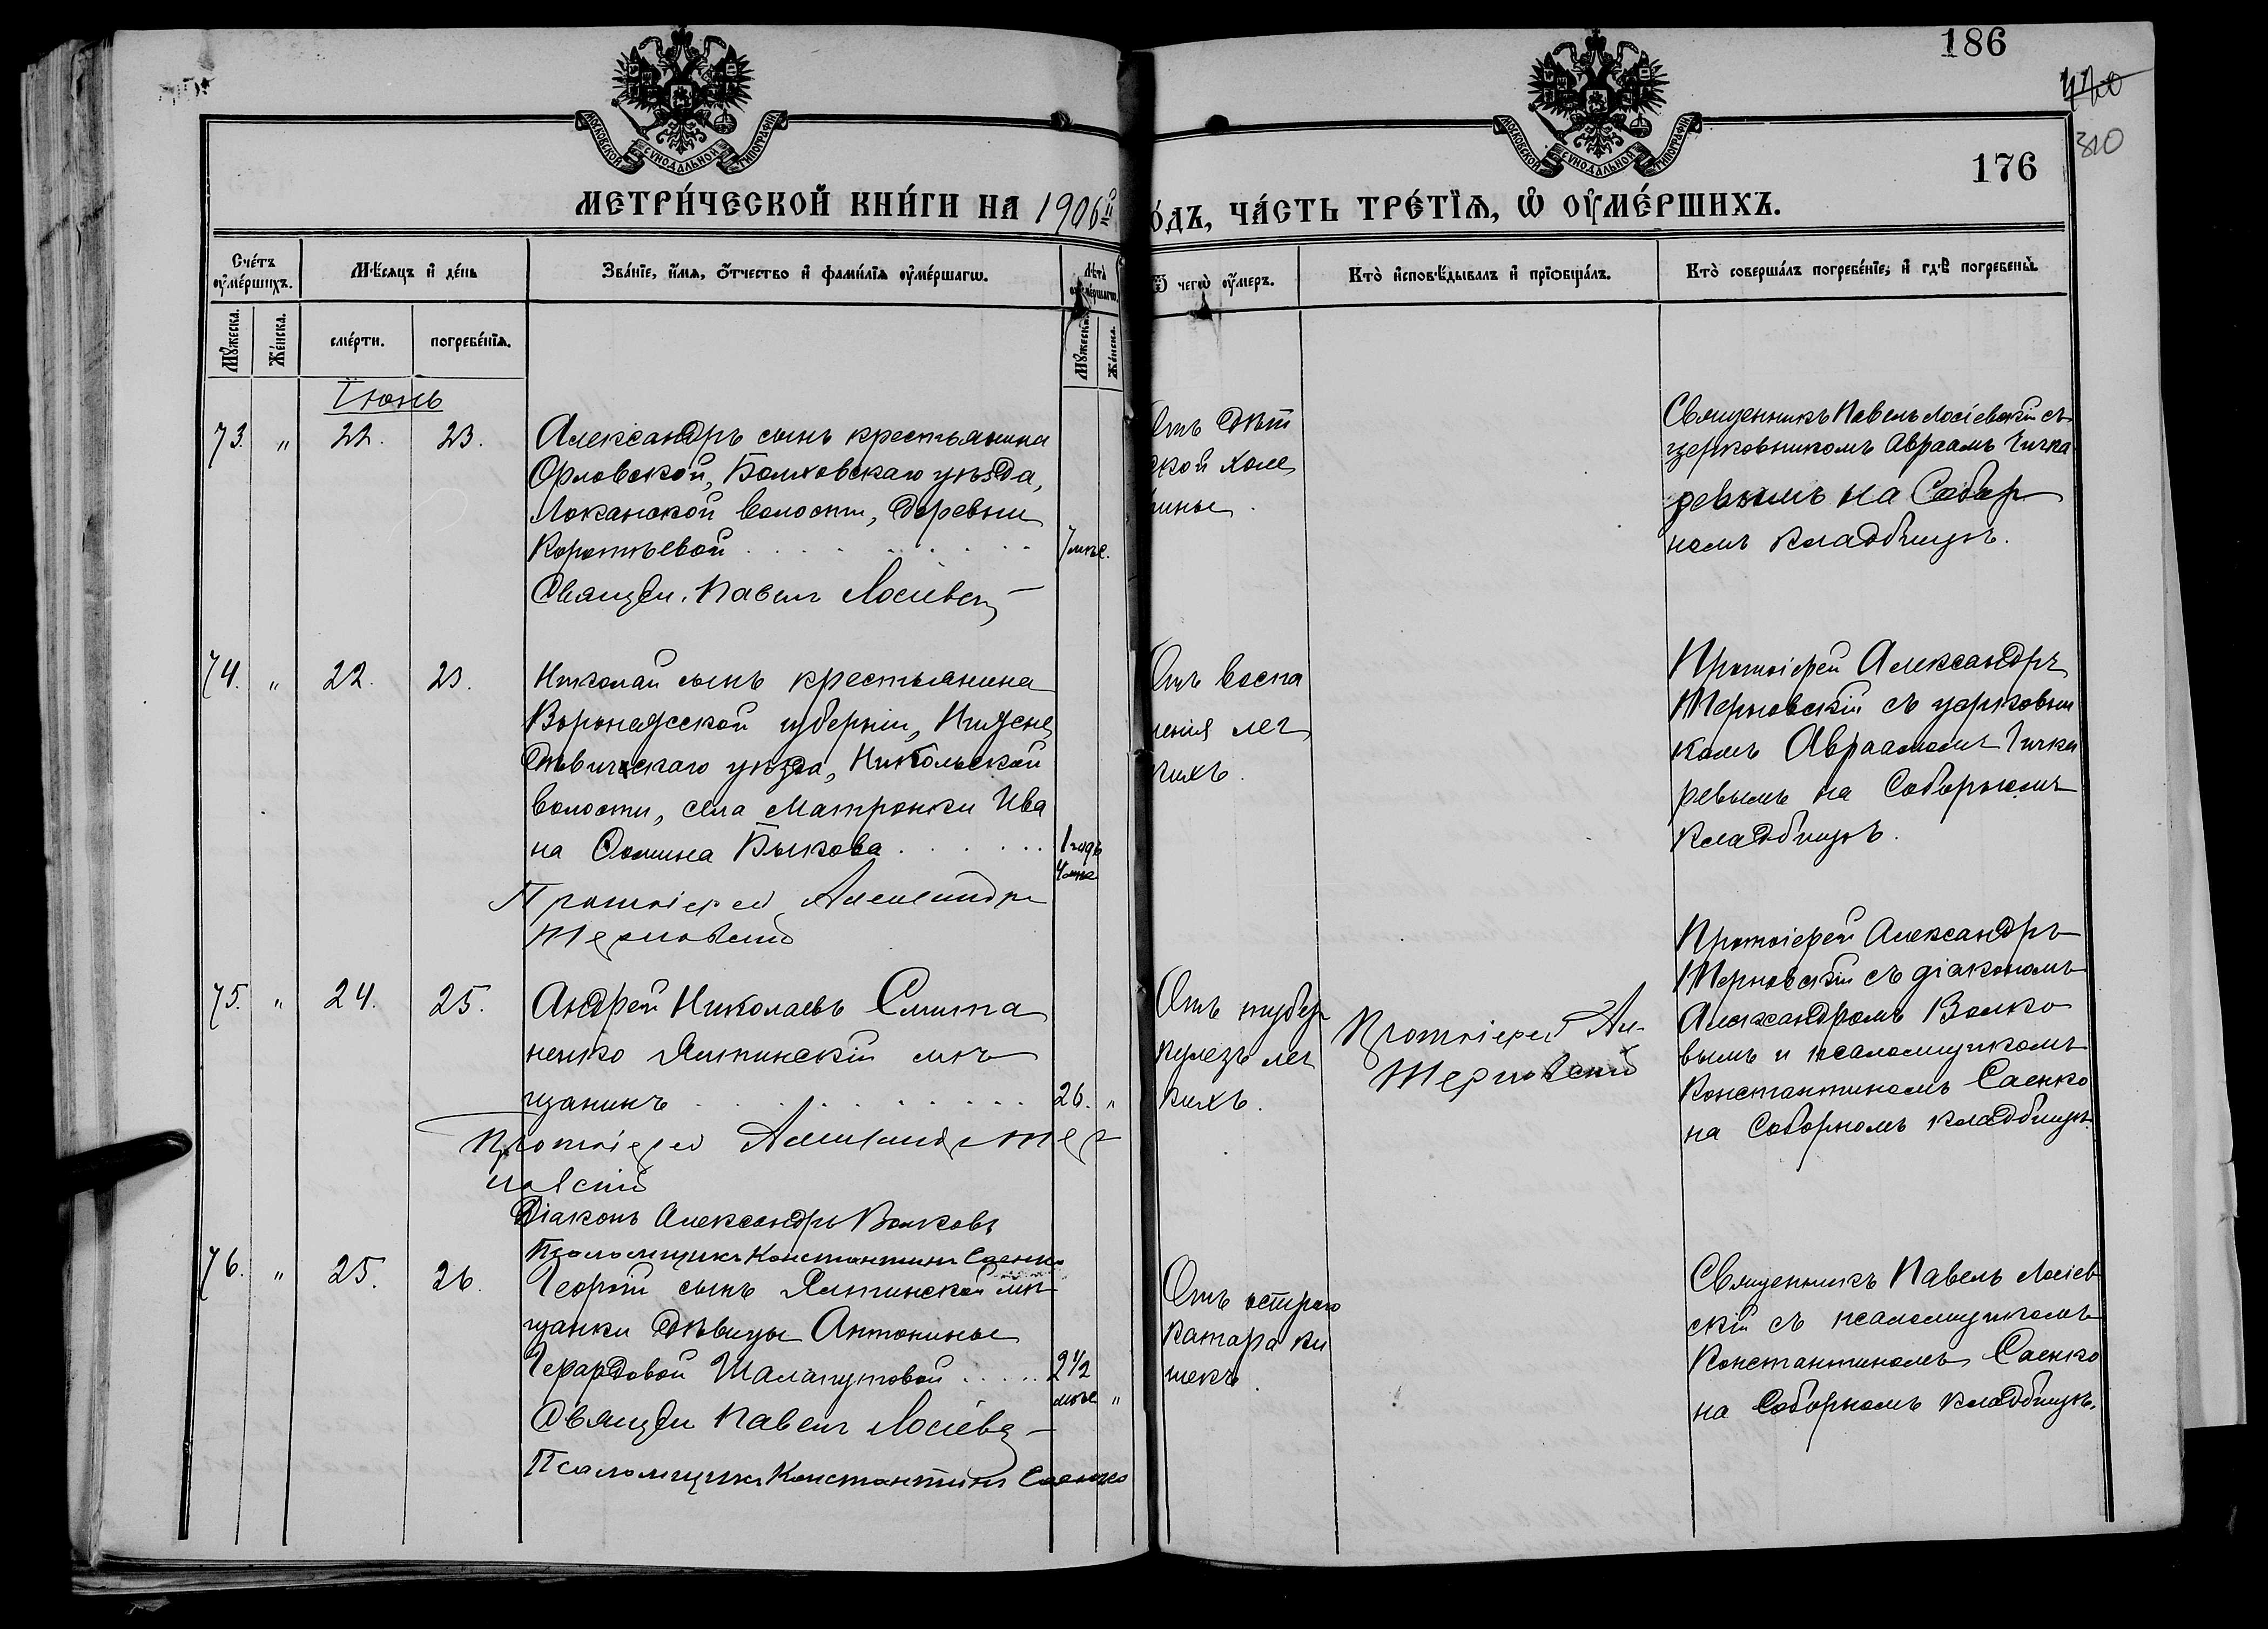 186
420
310
176
МОСКОВСКОЙ СУНОДАЛЬНОЙ ТИПОГРАФІИ
МОСКОВСКОЙ СУНОДАЛЬНОЙ ТИПОГРАФІИ
МЕТРИ́ЧЕСКОЙ КНИ́ГИ НА 1906й
о́дъ, ЧА́СТЬ ТРЕ́ТІѦ, Ѡ ОУМЕ́РШИХЪ.
Сче́тъ оумéршихъ.
Мѣ́сяцъ и де́нь
Зва́ніе, и́мя, о́тчество и фами́лія оумéршагѡ.
Лѣ́та оумéршагѡ.
Ѿ чегѡ̀ оу́меръ.
Кто̀ исповѣ́дывалъ и пріѡбща́лъ.
Кто̀ соверша́лъ погребе́ніе, и гдѣ̀ погребены̀.
Мꙋ́жеска.
Же́нска.
сме́рти.
погребе́нія.
Мꙋ́жеска.
Же́нска.
Іюнь
73. " 22. 23.
Александръ сынъ крестьянина
Орловской, Болховскаго уѣзда,
Локанской волости, деревни
Коротѣевой
7 мѣс.
Священ. Павелъ Лосіевск
Отъ дѣт
ской холе
рины.
Священникъ Павелъ Лосіевскій съ
церковникомъ Авраамъ Гичка
ревымъ на Собор
номъ кладбищѣ.
74. " 22. 23.
Николай сынъ крестьянина
Воронежской губерніи, Нижне
Дѣвичскаго уѣзда, Никольской
волости, села Матронки Ива
на Ѳомина Быкова
1 годъ
4 мѣс
Протоіерей Александръ
Терновскій
Отъ воспа
ленія лег
кихъ.
Протоіерей Александръ
Терновскій съ церковни
комъ Авраамомъ Гичка
ревымъ на Соборномъ
кладбищѣ.
75. " 24. 25.
Андрей Николаевъ Смита
ненко Ялтинскій мѣ
щанинъ
26. "
Протоіерей Александръ Тер
новскій
Діаконъ Александръ Волковъ
Псаломщикъ Константинъ Саенко
Отъ тубер
кулезъ лег
кихъ.
Протоіерей Ал.
Терновскій
Протоіерей Александръ
Терновскій съ діакономъ
Александромъ Волко
вымъ и псаломщикомъ
Константиномъ Саенко
на Соборномъ кладбищѣ.
76. " 25. 26.
Георгій сынъ Ялтинской мѣ
щанки дѣвицы Антонины
Герардовой Шалапутовой
2 1/2
мѣс "
Священ Павелъ Лосіевск
Псаломщикъ Константинъ Саенко
Отъ остраго
катара ки
шекъ.
Священникъ Павелъ Лосіев
скій съ псаломщикомъ
Константиномъ Саенко
на Соборномъ кладбищѣ.